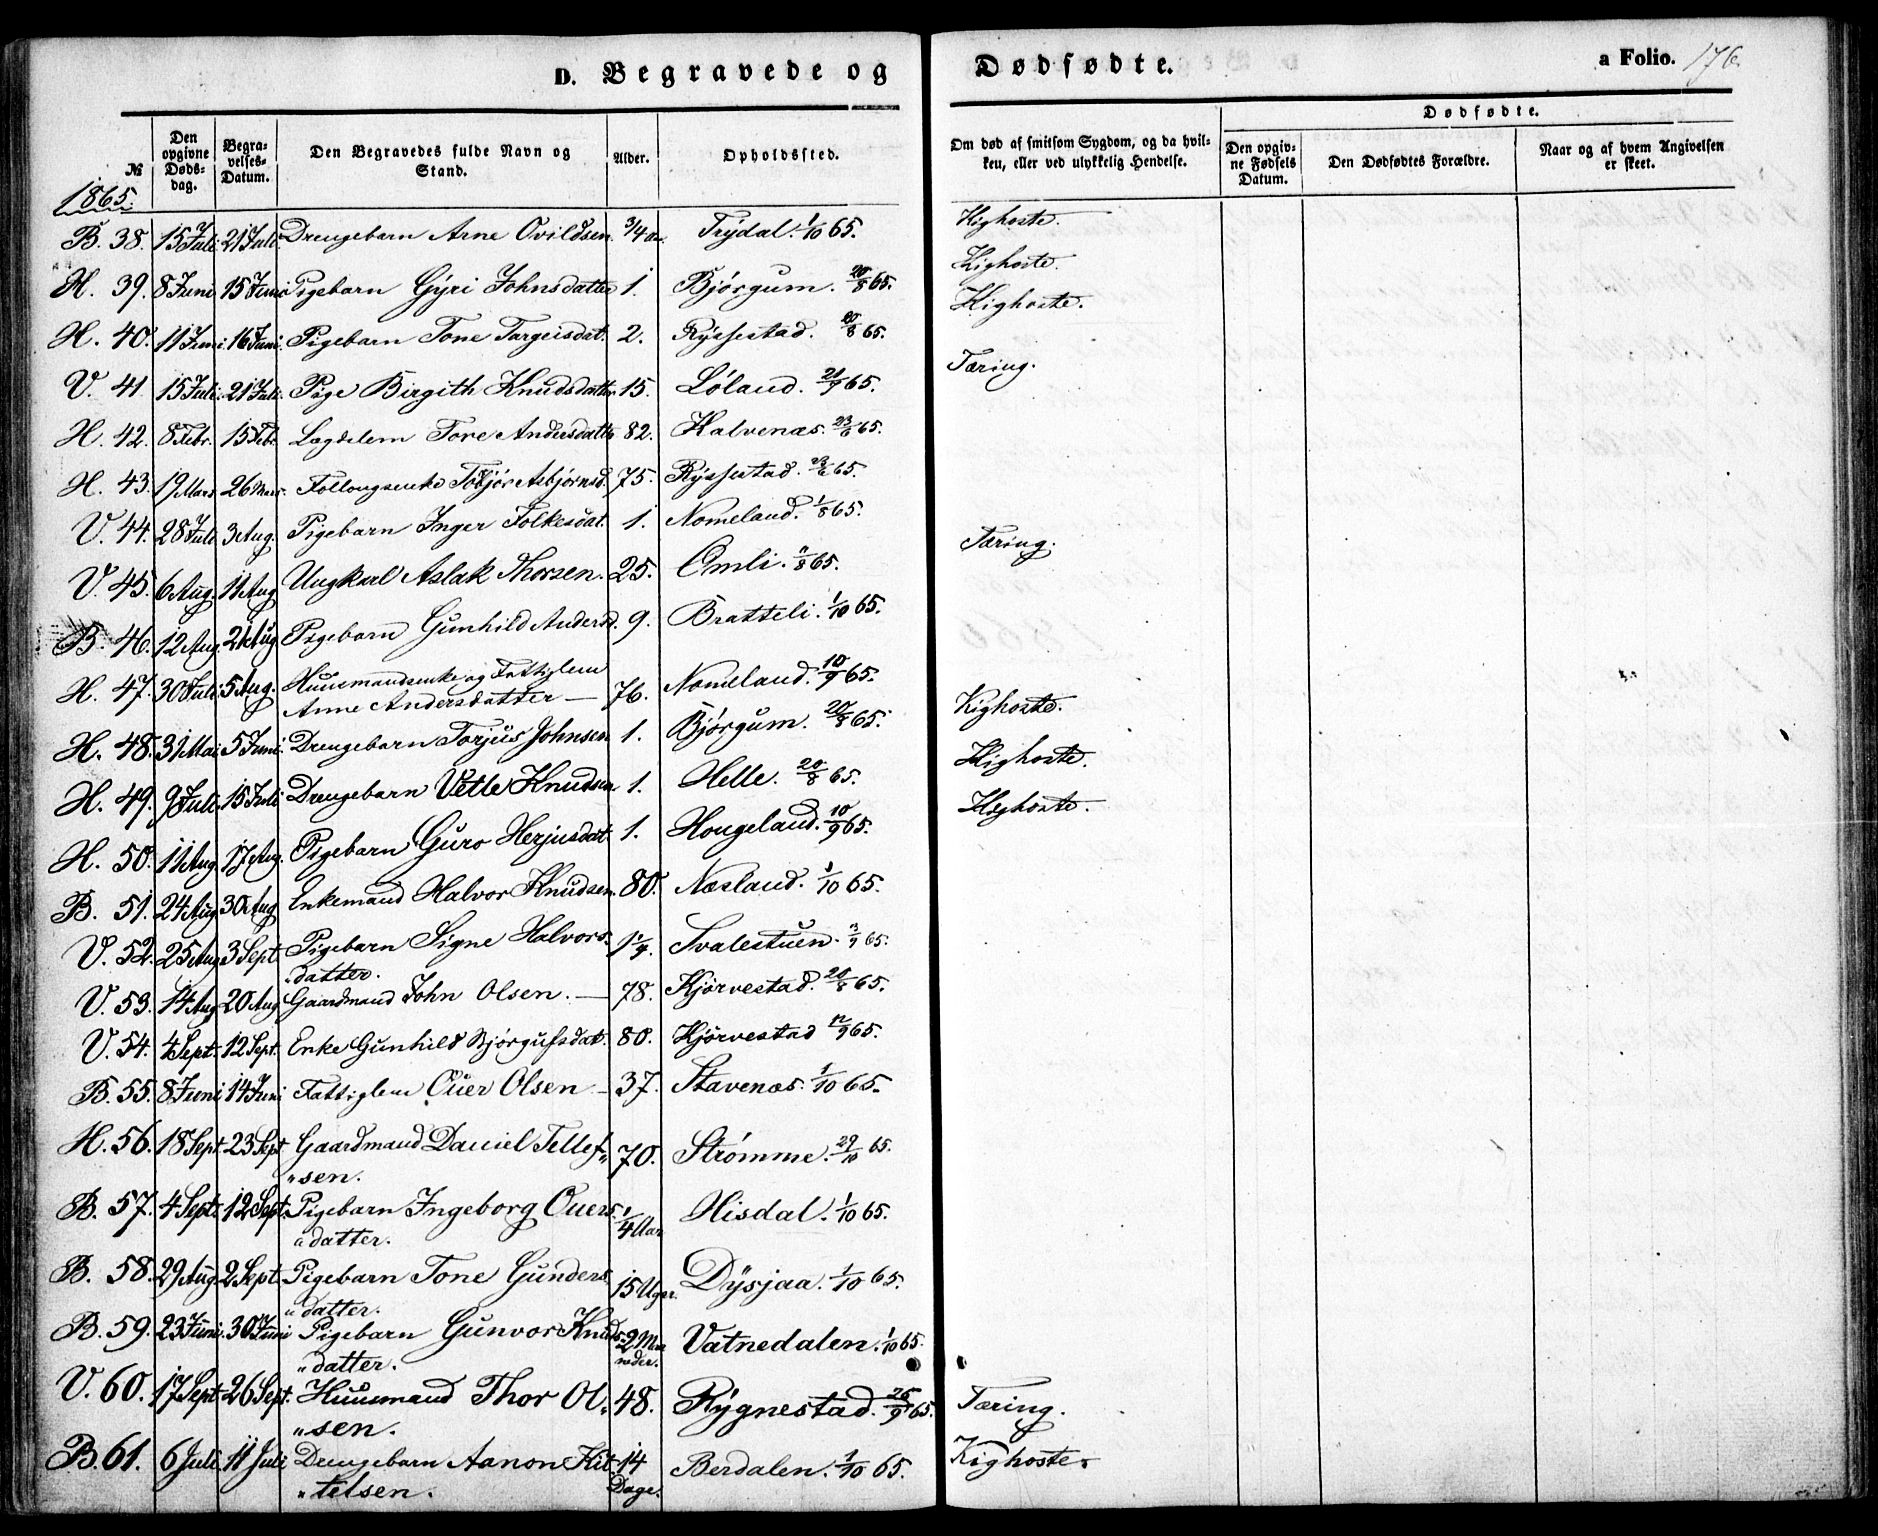 D. Begravede og Dødfødte. a Folio. 176.
Dødfødte.
№ Den opgivne Døds-dag. Begra-velses-Datum. Den Begravedes fulde Navn og Stand. Alder. Opholdssted. Om død af smitsom Sygdom, og da hvil-ken, eller ved ulykkelig Hendelse. Den opgiv-ne Fødsels Datum. Den Dødfødtes Forældre. Naar og af hvem Angivelsen er skeet.
1865.
B. 38. 15 Juli. 21 Juli. Drengebarn Arne Ovildsen. 3/4 Trydal. 1/10 65. Kighoste.
H. 39. 8 Juni 15 Juni Pigebarn Gyri Johnsdatter 1. Bjørgum. 20/8 65. Kighoste.
H. 40. 11 Juni. 16 Juni. Pigebarn Tone Targeisdat. 2. Ryssestad. 20/8 65. Kighoste.
V. 41. 15 Juli. 21 Juli. Pige Birgith Knudsdatter 15. Løland. 21/7 65. Tæring.
H. 42. 8 Febr. 15 Febr. Lægdelem Tore Andersdatt. 82. Halvenæs. 23/6 65.
H. 43. 19 Mars 26 Mars. Follougsenke Torbjør Asbjørnsd. 75. Ryssestad. 23/6 65.
V. 44. 28 Juli 3 Aug. Pigebarn Inger Folkesdat. 1. Nomeland. 1/8 65.
V. 45. 6 Aug. 11 Aug Ungkarl Aslak Thorsen. 25. Omli. 11/8 65. Tæring.
B. 46. 12 Aug. 21 Aug Pigebarn Gunhild Andersd. 9. Bratteli. 1/10 65.
H. 47. 30 Juli 5 Aug. Huusmandsenke og Fattiglem
Anne Andersdatter — 76. Nomeland. 10/9 65.
H. 48. 31 Mai 5 Juni. Drengebarn Torjus Johnsen 1. Bjørgum. 20/8 65. Kighoste.
H. 49. 9 Juli. 15 Juli Drengebarn Vetle Knudsen 1. Helle. 20/8 65. Kighoste.
H. 50. 11 Aug. 17 Aug. Pigebarn Guro Herjusdat. 1. Hougeland. 10/9 65. Kighoste.
B. 51. 24 Aug 30 Aug Enkemand Halvor Knudsen. 80. Næsland. 1/10 65.
V. 52. 25 Aug 3 Sept Pigebarn Signe Halvors-
datter. 1 1/4. Svalestuen. 3/9 65.
V. 53. 14 Aug 20 Aug Gaardmand John Olsen. — 78. Kjørvestad. 20/8 65.
V. 54. 4 Sept. 12 Sept. Enke Gunhild Bjørgufsdat. 80. Kjørvestad 12/9 65.
B. 55. 8 Juni 14 Juni Fattiglem Ouer Olsen — 37. Stavenæs. 1/10 65.
H. 56. 18 Sept. 23 Sept Gaardmand Daniel Tellef-
sen. 70. Strømme. 29/10 65.
B. 57. 4 Sept. 12 Sept. Pigebarn Ingeborg Ouers-
datter. 1/4 Aar Hisdal. 1/10 65.
B. 58. 29 Aug. 2 Sept. Pigebarn Tone Gunders-
datter. 15 Uger. Dysjaa. 1/10 65.
B. 59. 23 Juni. 30 Juni Pigebarn Gunvor Knuds-
datter. 2 Maaneder. Vatnedalen. 1/10 65.
V. 60. 17 Sept. 26 Sept. Huusmand Thor Ol-
sen. 48. Rygnestad. 26/9 65. Tæring.
B. 61. 6 Juli. 11 Juli Drengebarn Aanon Kit-
telsen. 14 Dage. Berdalen. 1/10 65. Kighoste.